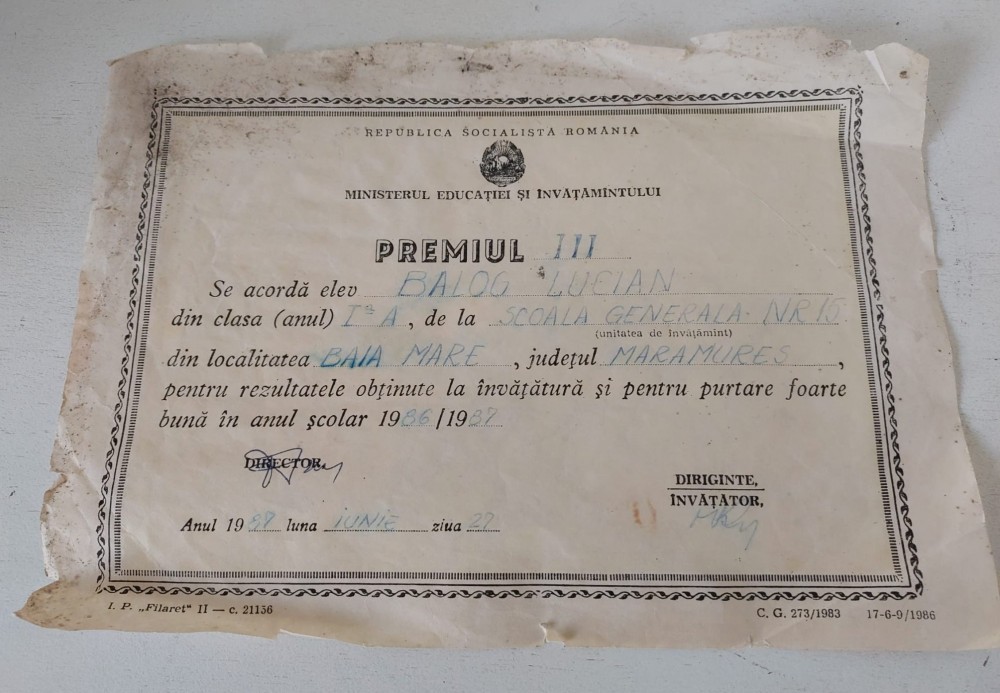 REPUBLICA SOCIALISTĂ ROMÂNIA
MINISTERUL EDUCAȚIEI ȘI ÎNVĂȚĂMÎNTULUI
PREMIUL III
Se acordă elev BALOG LUCIAN
din clasa (anul) I-a A, de la SCOALA GENERALA NR 15
(unitatea de învățămînt)
din localitatea BAIA MARE, județul MARAMURES,
pentru rezultatele obținute la învățătură și pentru purtare foarte
bună în anul școlar 1986/1987
DIRECTOR,
DIRIGINTE,
ÎNVĂȚĂTOR,
Anul 1987 luna IUNIE ziua 27
I. P. „Filaret" II — c. 21156
C. G. 273/1983 17-6-9/1986